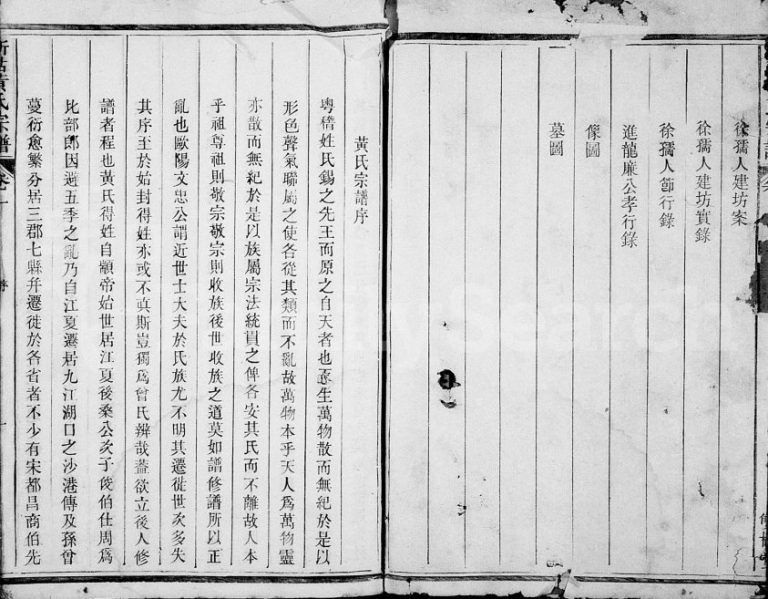 徐孺人建坊案
徐孺人建坊實錄
徐孺人節行錄
進龍廉公孝行錄
像圖
墓圖
黃氏宗譜序
粵稽姓氏錫之先王而原之自天者也天生萬物散而無紀於是以
形色聲氣聯屬之使各從其類而不亂故萬物本乎天人為萬物靈
亦散而無紀於是以族屬宗法統貫之俾各安其氏而不離故人本
乎祖尊祖則敬宗敬宗則收族後世收族之道莫如譜修譜所以正
亂也歐陽文忠公謂近世士大夫於氏族尤不明其遷徙世次多失
其序至於始封得姓亦或不真斯豈獨為曾氏辨哉蓋欲立後人修
譜者程也黃氏得姓自顓帝始世居江夏後桑公次子俊伯仕周為
比部郎因避五季之亂乃自江夏遷居九江湖口之沙港傳及孫曾
蔓衍愈繁分居三郡七縣幷遷徙於各省者不少有宋都昌商伯先
黃氏宗譜
卷一
序